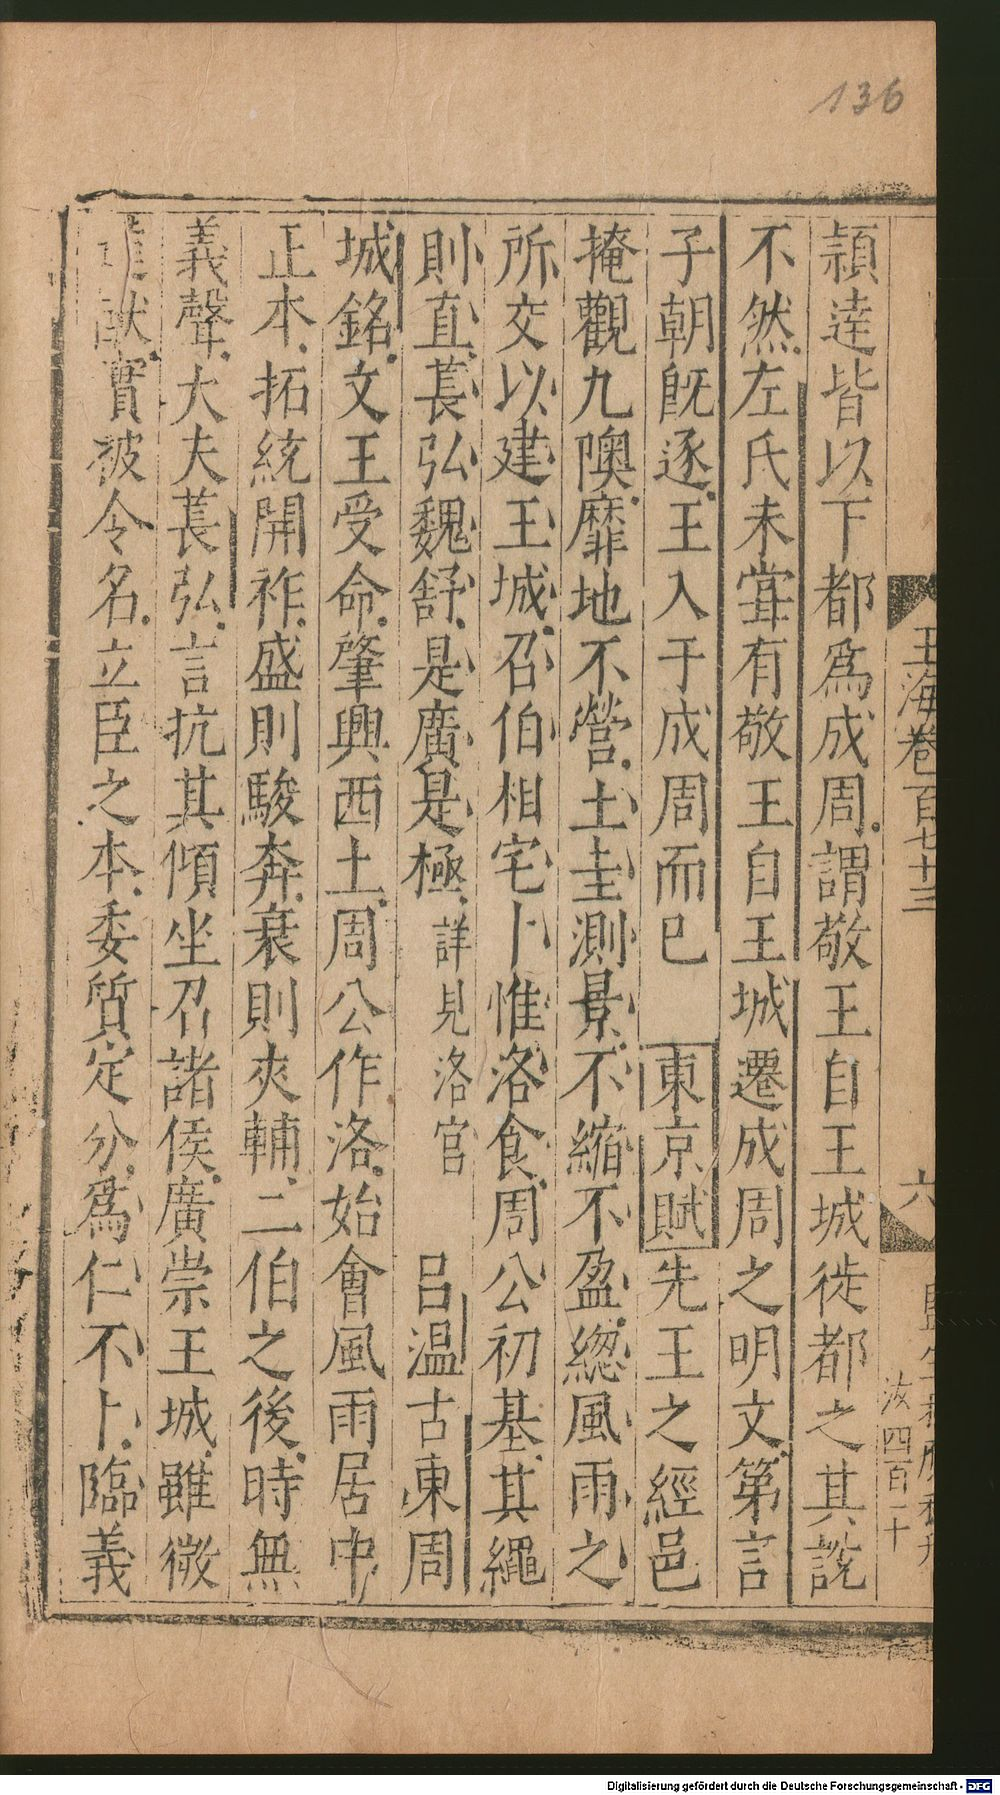 136
玉海卷百七十三
六
汝四百一十
頴逹皆以下都爲成周謂敬王自王城徙都之其說
不然左氏未甞有敬王自王城遷成周之明文第言
子朝旣逐王入于成周而已　東京賦先王之經邑
掩觀九隩靡地不營土圭測景不縮不盈緫風雨之
所交以建王城召伯相宅卜惟洛食周公初基其繩
則直萇弘魏舒是廣是極詳見洛宫　吕温古東周
城銘文王受命肇興西土周公作洛始會風雨居中
正本拓統開祚盛則駿奔衰則夾輔二伯之後時無
義聲大夫萇弘言抗其傾坐召諸侯廣崇王城雖微
猷實被令名立臣之本委質定分爲仁不卜臨義
Digitalisierung gefördert durch die Deutsche Forschungsgemeinschaft - DFG